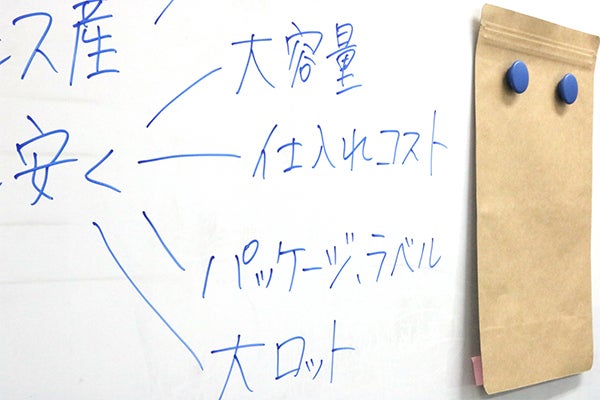 ス産
安く
大容量
仕入れコスト
パッケージ、ラベル
大ロット